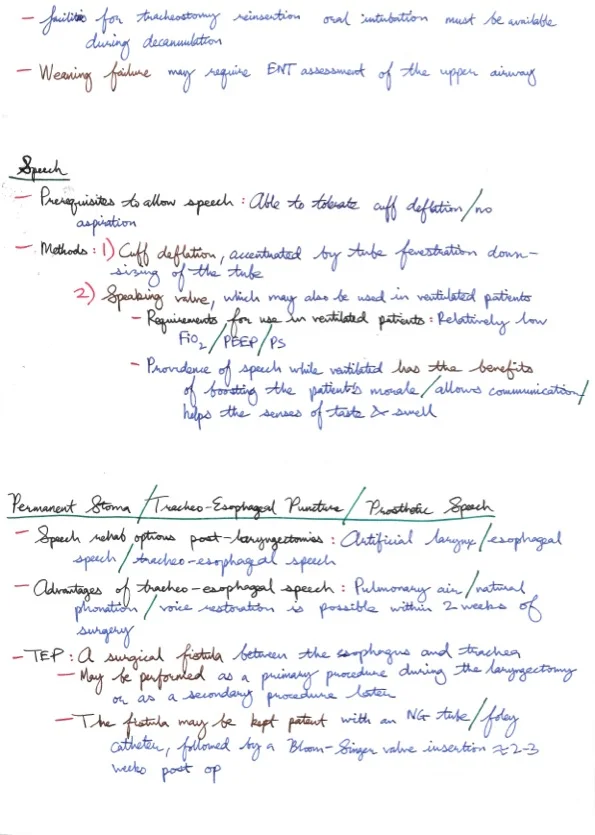 - facilities for tracheostomy reinsertion oral intubation must be available
during decannulation
- Weaning failure may require ENT assessment of the upper airway
Speech
- Prerequisites to allow speech : Able to tolerate cuff deflation/no
aspiration
- Methods : 1) Cuff deflation, accentuated by tube fenestration down-
sizing of the tube
2) Speaking valve, which may also be used in ventilated patients
- Requirements for use in ventilated patients : Relatively low
FiO2/PEEP/PS
- Providence of speech while ventilated has the benefits
of boosting the patient's morale/allows communication/
helps the senses of taste & smell
Permanent Stoma/Tracheo-Esophageal Puncture/Prosthetic Speech
- Speech rehab options post-laryngectomies : Artificial larynx/esophageal
speech/tracheo-esophageal speech
- Advantages of tracheo-esophageal speech : Pulmonary air/natural
phonation/voice restoration is possible within 2 weeks of
surgery
- TEP : A surgical fistula between the esophagus and trachea
- May be performed as a primary procedure during the laryngectomy
or as a secondary procedure later
- The fistula may be kept patent with an NG tube/foley
catheter, followed by a Blom-Singer valve insertion ≈ 2-3
weeks post op